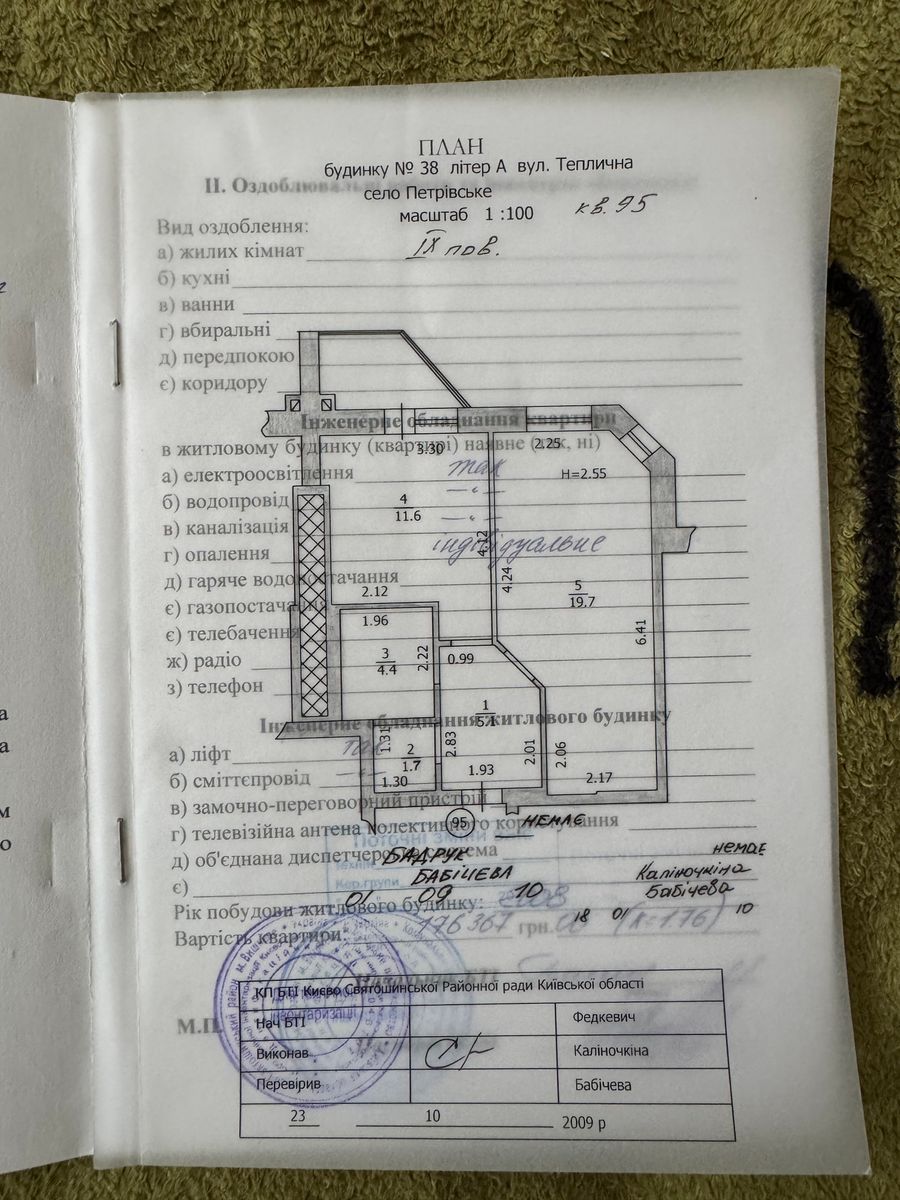 ПЛАН
будинку № 38 літер А вул. Теплична
село Петрівське
масштаб 1 :100
кв. 95
IX пов.
II. Оздоблювальні
Вид оздоблення:
а) жилих кімнат
б) кухні
в) ванни
г) вбиральні
д) передпокою
є) коридору
Інженерне обладнання квартири
в житловому будинку (квартирі) наявне (так, ні)
а) електроосвітлення так
б) водопровід -"-
в) каналізація -"-
г) опалення індивідуальне
д) гаряче водопостачання
є) газопостачання
є) телебачення
ж) радіо
з) телефон
3.30
2.25
H=2.55
4
11.6
4.12
4.24
5
19.7
2.12
1.96
6.41
3
4.4
2.22
0.99
1
5.1
Інженерне обладнання житлового будинку
1.31
2
1.7
2.83
1.93
2.01
2.06
2.17
1.30
а) ліфт так
б) сміттєпровід -"-
в) замочно-переговорний пристрій
г) телевізійна антена колективного користування
95
НЕМАЄ
Поточні зміни
д) об'єднана диспетчерська система
БАДРУК
немає
є)
БАБІЧЕВА
Каліночкіна
Бабічева
Кер.групи
01 09 10
18 01 10
Рік побудови житлового будинку: 2008
Вартість квартири: 176 367 грн. 00 (к=1.76)
М.П.
КП БТІ Києво Святошинської Районної ради Київської області
Нач БТІ Федкевич
Виконав Каліночкіна
Перевірив Бабічева
23 10 2009 р